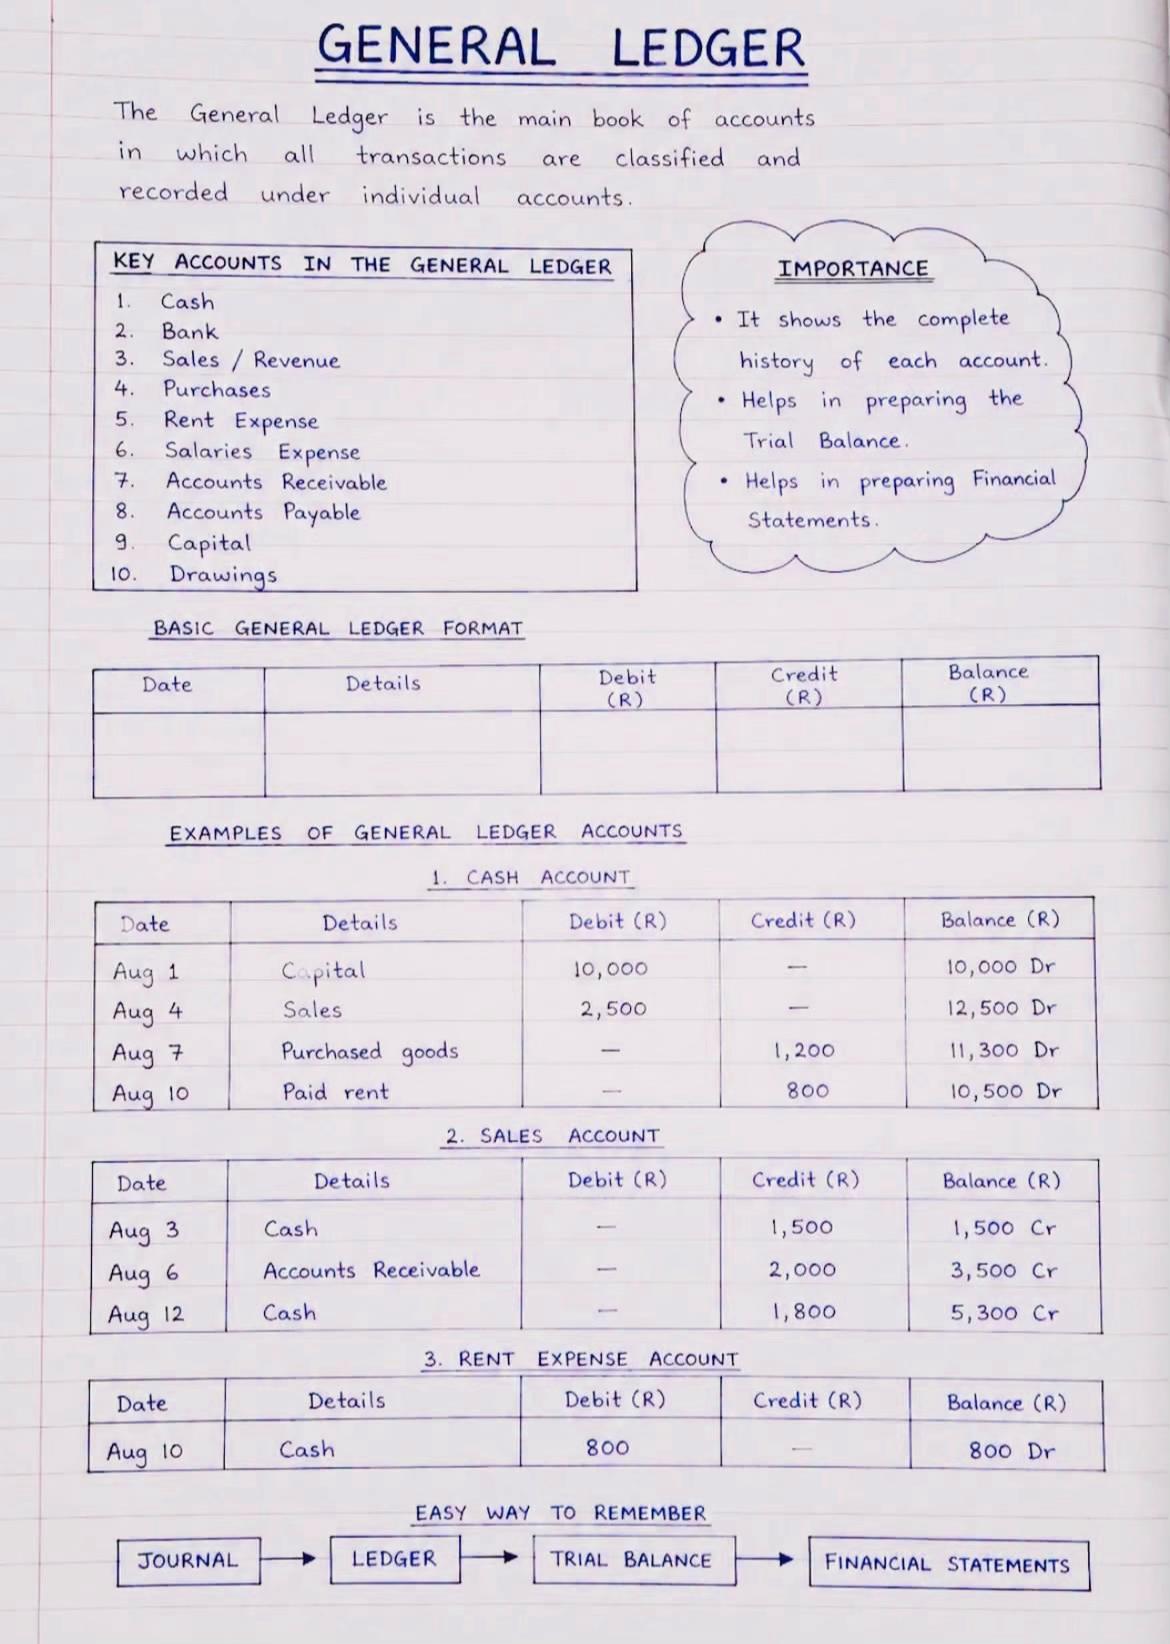 GENERAL LEDGER
The General Ledger is the main book of accounts
in which all transactions are classified and
recorded under individual accounts.
KEY ACCOUNTS IN THE GENERAL LEDGER
1. Cash
2. Bank
3. Sales / Revenue
4. Purchases
5. Rent Expense
6. Salaries Expense
7. Accounts Receivable
8. Accounts Payable
9. Capital
10. Drawings
IMPORTANCE
• It shows the complete
history of each account.
• Helps in preparing the
Trial Balance.
• Helps in preparing Financial
Statements.
BASIC GENERAL LEDGER FORMAT
Date Details Debit (R) Credit (R) Balance (R)
EXAMPLES OF GENERAL LEDGER ACCOUNTS
1. CASH ACCOUNT
Date Details Debit (R) Credit (R) Balance (R)
Aug 1 Capital 10,000 — 10,000 Dr
Aug 4 Sales 2,500 — 12,500 Dr
Aug 7 Purchased goods — 1,200 11,300 Dr
Aug 10 Paid rent — 800 10,500 Dr
2. SALES ACCOUNT
Date Details Debit (R) Credit (R) Balance (R)
Aug 3 Cash — 1,500 1,500 Cr
Aug 6 Accounts Receivable — 2,000 3,500 Cr
Aug 12 Cash — 1,800 5,300 Cr
3. RENT EXPENSE ACCOUNT
Date Details Debit (R) Credit (R) Balance (R)
Aug 10 Cash 800 — 800 Dr
EASY WAY TO REMEMBER
JOURNAL → LEDGER → TRIAL BALANCE → FINANCIAL STATEMENTS